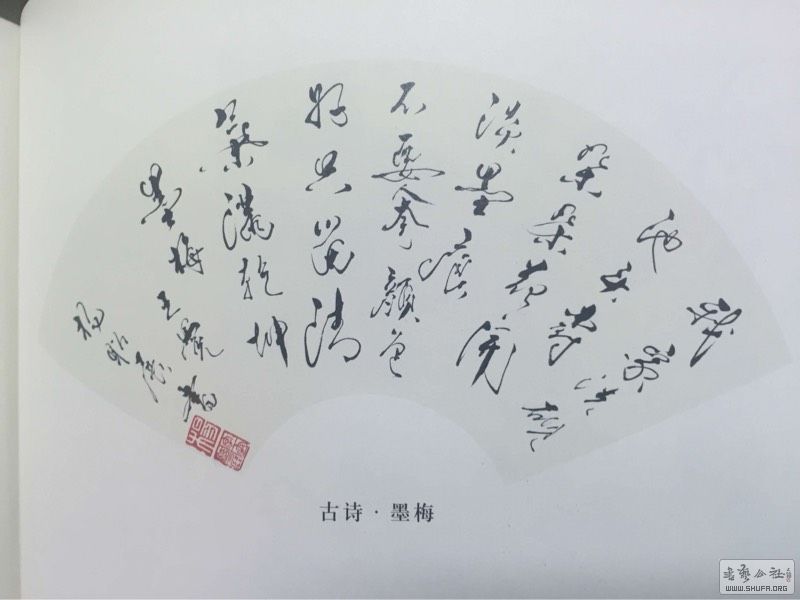 我家洗研
池头树
朵朵花開
淡墨痕
不要人夸顏色
好只留清
氣滿乾坤
墨梅王冕
古诗·墨梅
书艺公社
WWW.SHUFA.ORG